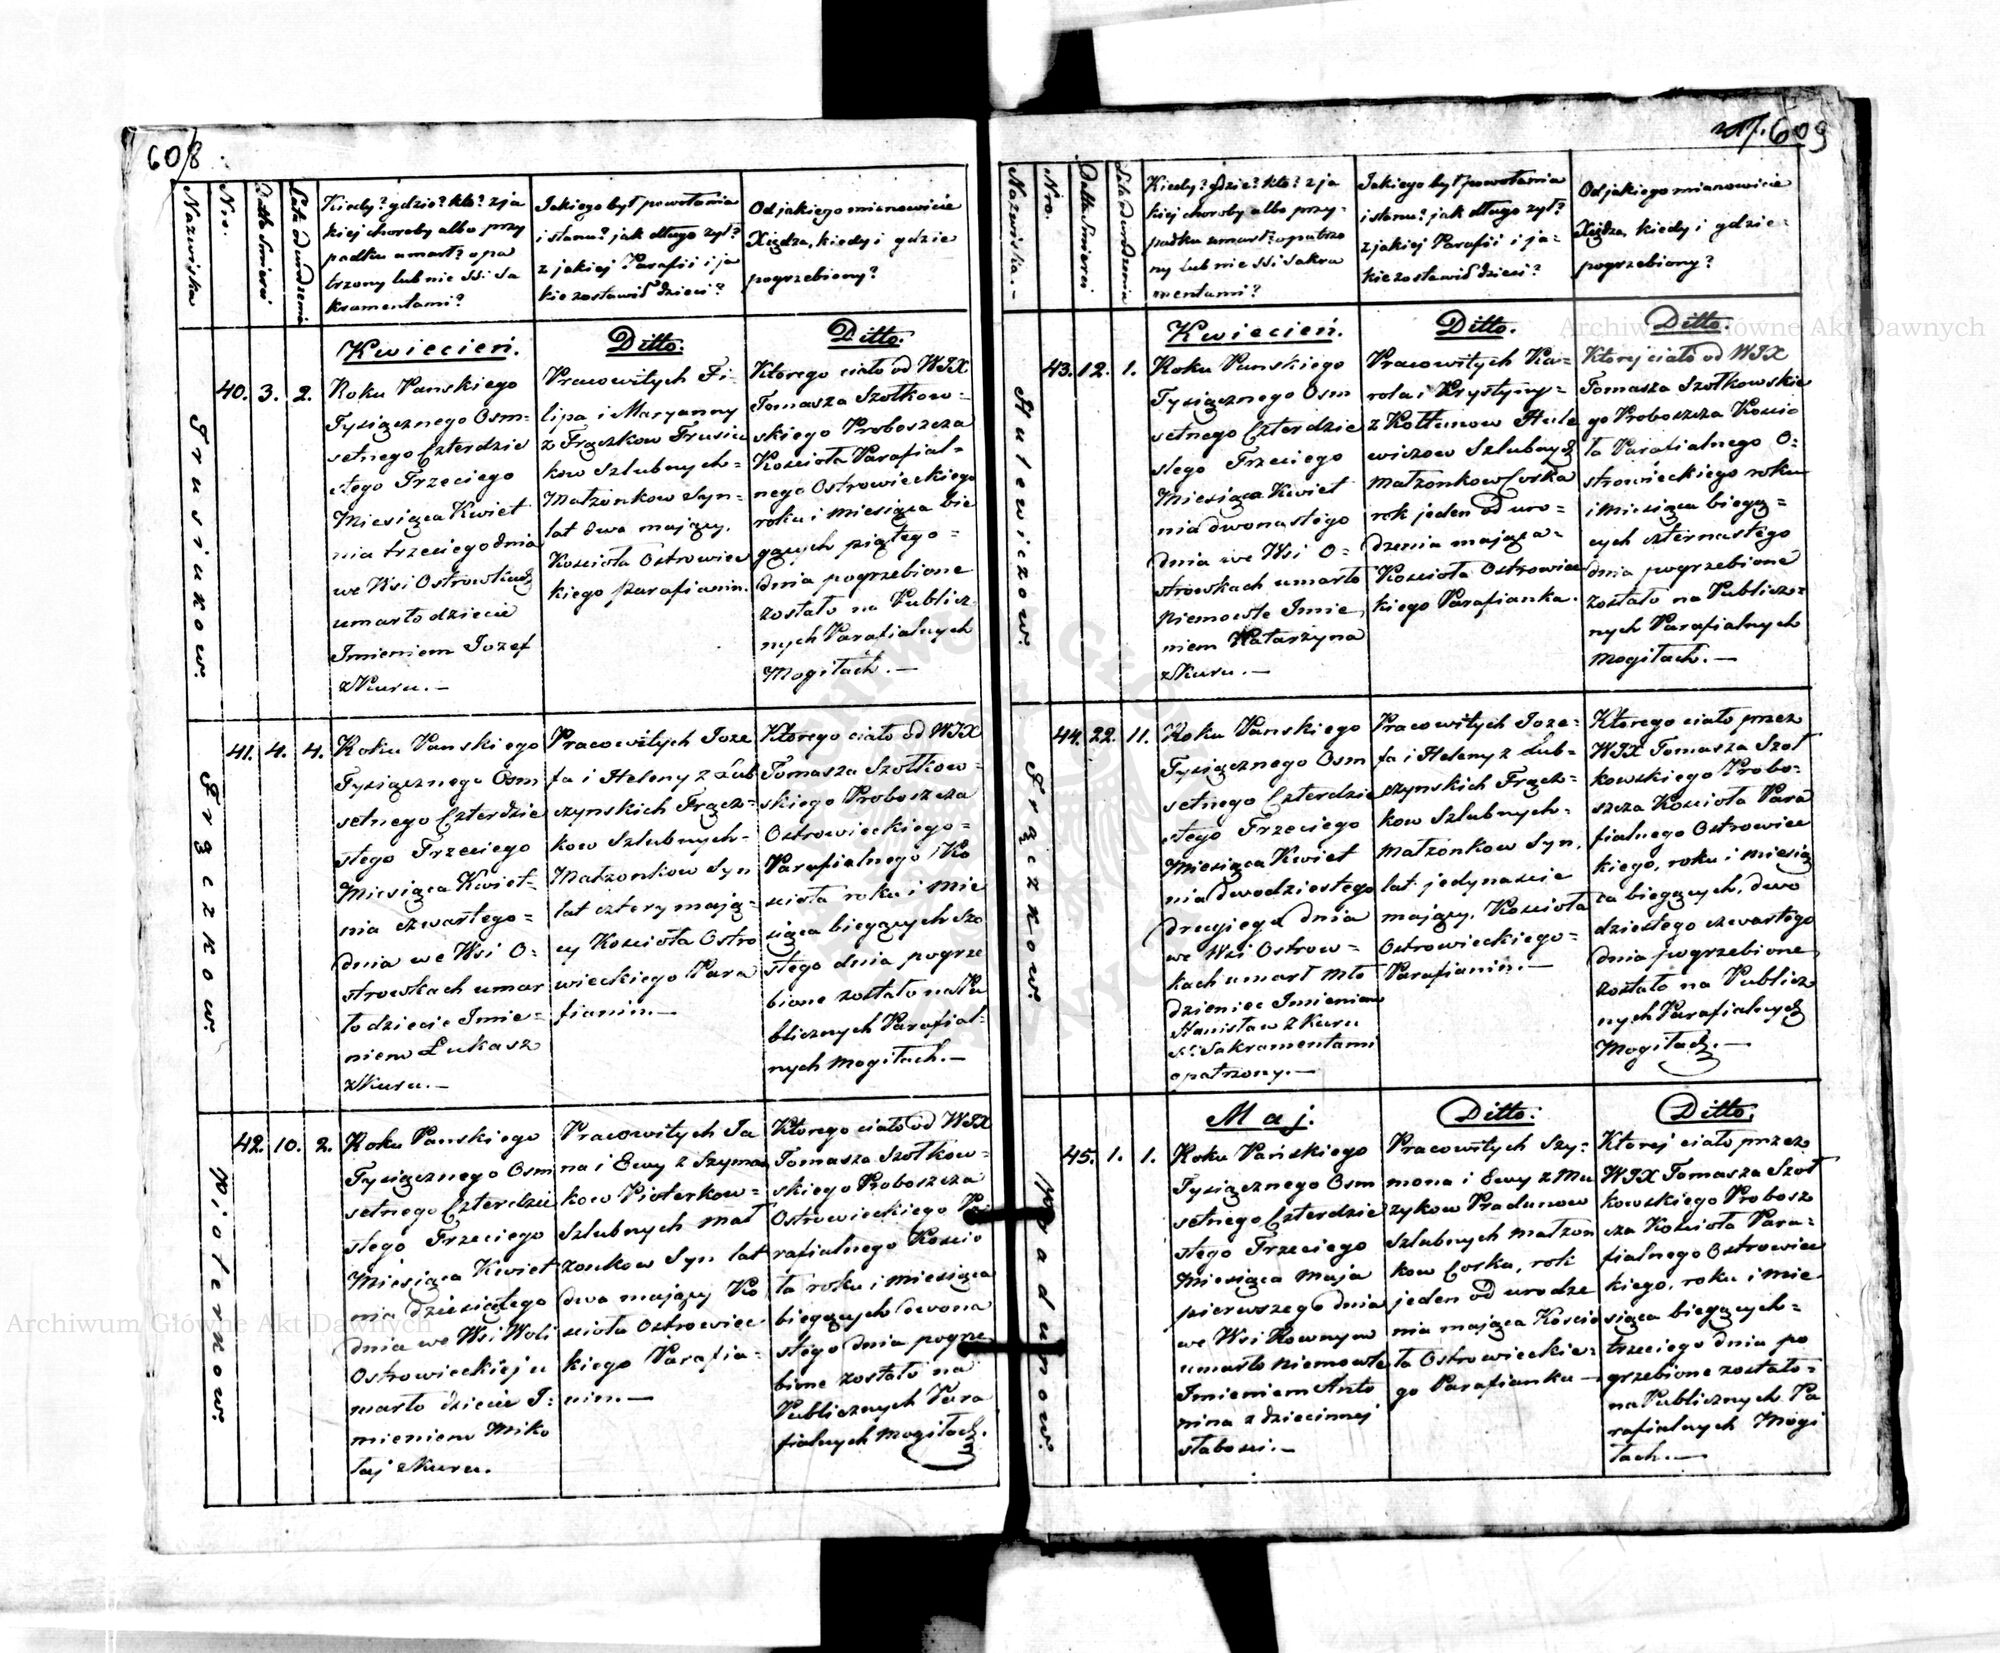 608
Nazwiska
Nro.
Data Smierci
Lata od urodzenia
Kiedy? gdzie? kto? z ja
kiej choroby albo przy
padku umarł? opa
trzony lub nie SSi Sa
kramentami?
Jakiego był powołania
i stanu? jak długo żył?
z jakiej Parafii i ja
kie zostawił dzieci?
Od jakiego mianowicie
Xiędza, kiedy i gdzie
pogrzebiony?
Kwiecień.
Ditto.
Ditto.
Trusiukow.
40. 3. 2.
Roku Panskiego
Tysiącznego Osm=
setnego Czterdzie
stego Trzeciego
Miesiąca Kwiet
nia trzeciego dnia
we Wsi Ostrowkach
umarło dziecie
Imieniem Jozef
z Kuru.—
Pracowitych Fi-
lipa i Maryanny
z Frączkow Trusiu
kow Szlubnych=
Małżonkow Syn-
lat dwa mający,
Kościoła Ostrowiec
kiego Parafianin.
Ktorego ciało od WJX
Tomasza Szołkow-
skiego Proboszcza
Kościoła Parafial=
nego Ostrowieckiego
roku i miesiąca bie
gących piątego=
dnia pogrzebione
zostało na Publicz
nych Parafialnych
Mogiłach.—
Frączkow.
41. 4. 4.
Roku Panskiego
Tysiącznego Osm
setnego Czterdzie
stego Trzeciego
Miesiąca Kwiet-
nia czwartego=
dnia we Wsi O=
strowkach umar
ło dziecie Imie=
niem Łukasz
z Kuru.—
Pracowitych Joze
fa i Heleny z Lub
szynskich Frącz=
kow Szlubnych-
Małżonkow Syn
lat cztery mają=
cy Kościoła Ostro
wieckiego Para
fianin.—
Ktorego ciało od WJX
Tomasza Szołkow=
skiego Proboszcza
Ostrowieckiego=
Parafialnego Ko
ścioła roku i mie
siąca biegących szo
stego dnia pogrze
bione zostało na Pu
blicznych Parafial-
nych Mogiłach.—
Pioterkow.
42. 10. 2.
Roku Panskiego
Tysiącznego Osm
setnego Czterdzie
stego Trzeciego
Miesiąca Kwiet
nia dziesiątego
dnia we Wsi Woli
Ostrowieckiej u
marło dziecie I=
mieniem Miko
łaj z Kuru.
Pracowitych Ja
na i Ewy z Szyman
kow Pioterkow=
Szlubnych Mał
żonkow Syn lat
dwa mający Ko
ścioła Ostrowiec
kiego Parafia=
nin.—
Ktorego ciało od WJX
Tomasza Szołkow=
skiego Proboszcza
Ostrowieckiego Pa
rafialnego Kościo
ła roku i miesiąca
biegących dwona
stego dnia pogrze
bione zostało na
Publicznych Para
fialnych Mogiłach.
609
Nazwiska.—
Nro.
Data Smierci
Lata od urodzenia
Kiedy? gdzie? kto? z ja
kiej choroby albo przy-
padku umarł? opatrzo
ny lub nie SSi Sakra
mentami?
Jakiego był powołania
i stanu? jak długo żył?
z jakiej Parafii i ja=
kie zostawił dzieci?
Od jakiego mianowicie
Xiędza, kiedy i gdzie-
pogrzebiony?
Kwiecień.
Ditto.
Ditto.
Hulewiczow.
43. 12. 1.
Roku Panskiego
Tysiącznego Osm
setnego Czterdzie
stego Trzeciego
Miesiąca Kwiet
nia dwonastego
dnia we Wsi O=
strowkach umarło
Niemowle Imie
niem Katarzyna
z Kuru.—
Pracowitych Ka=
rola i Krystyny-
z Kołtunow Hule
wiczow Szlubnych
Małżonkow Corka
rok jeden od uro=
dzenia mająca-
Kościoła Ostrowiec
kiego Parafianka.
Ktorej ciało od WJX
Tomasza Szołkowskie
go Proboszcza Kościo
ła Parafialnego O=
strowieckiego roku
i miesiąca biegą=
cych czternastego
dnia pogrzebione
zostało na Publicz=
nych Parafialnych
Mogiłach.—
Frączkow.
44. 22. 11.
Roku Panskiego
Tysiącznego Osm
setnego Czterdzie
stego Trzeciego
Miesiąca Kwiet
nia dwodziestego
drugiego dnia
we Wsi Ostrow=
kach umarł Mło
dzieniec Imieniem
Stanisław z Kuru
SS: Sakramentami
opatrzony.—
Pracowitych Joze=
fa i Heleny z Lub-
szynskich Frącz=
kow Szlubnych-
Małżonkow Syn,
lat jedynascie
mający, Kościoła
Ostrowieckiego=
Parafianin.—
Ktorego ciało przez
WJX Tomasza Szoł
kowskiego Probo=
szcza Kościoła Para
fialnego Ostrowiec
kiego, roku i miesią
ca biegących, dwo
dziestego czwartego
dnia pogrzebione
zostało na Publicz
nych Parafialnych
Mogiłach.—
Maj.
Ditto.
Ditto.
Pradunow.
45. 1. 1.
Roku Pańskiego
Tysiącznego Osm
setnego Czterdzie
stego Trzeciego
Miesiąca Maja
pierwszego dnia
we Wsi Rownym
umarło Niemowle
Imieniem Anto
nina z dziecinnej
słabości.—
Pracowitych Szy=
mona i Ewy z Mu
zykow Pradunow
Szlubnych Małżon
kow Corka, rok
jeden od urodze
nia mająca Kościo
ła Ostrowieckie=
go Parafianka—
Ktorej ciało przez
WJX Tomasza Szoł
kowskiego Probosz
cza Kościoła Para=
fialnego Ostrowiec
kiego, roku i mie
siąca biegących=
trzeciego dnia po
grzebione zostało=
na Publicznych Pa
rafialnych Mogi
łach.—
Archiwum Główne Akt Dawnych
Archiwum Główne Akt Dawnych